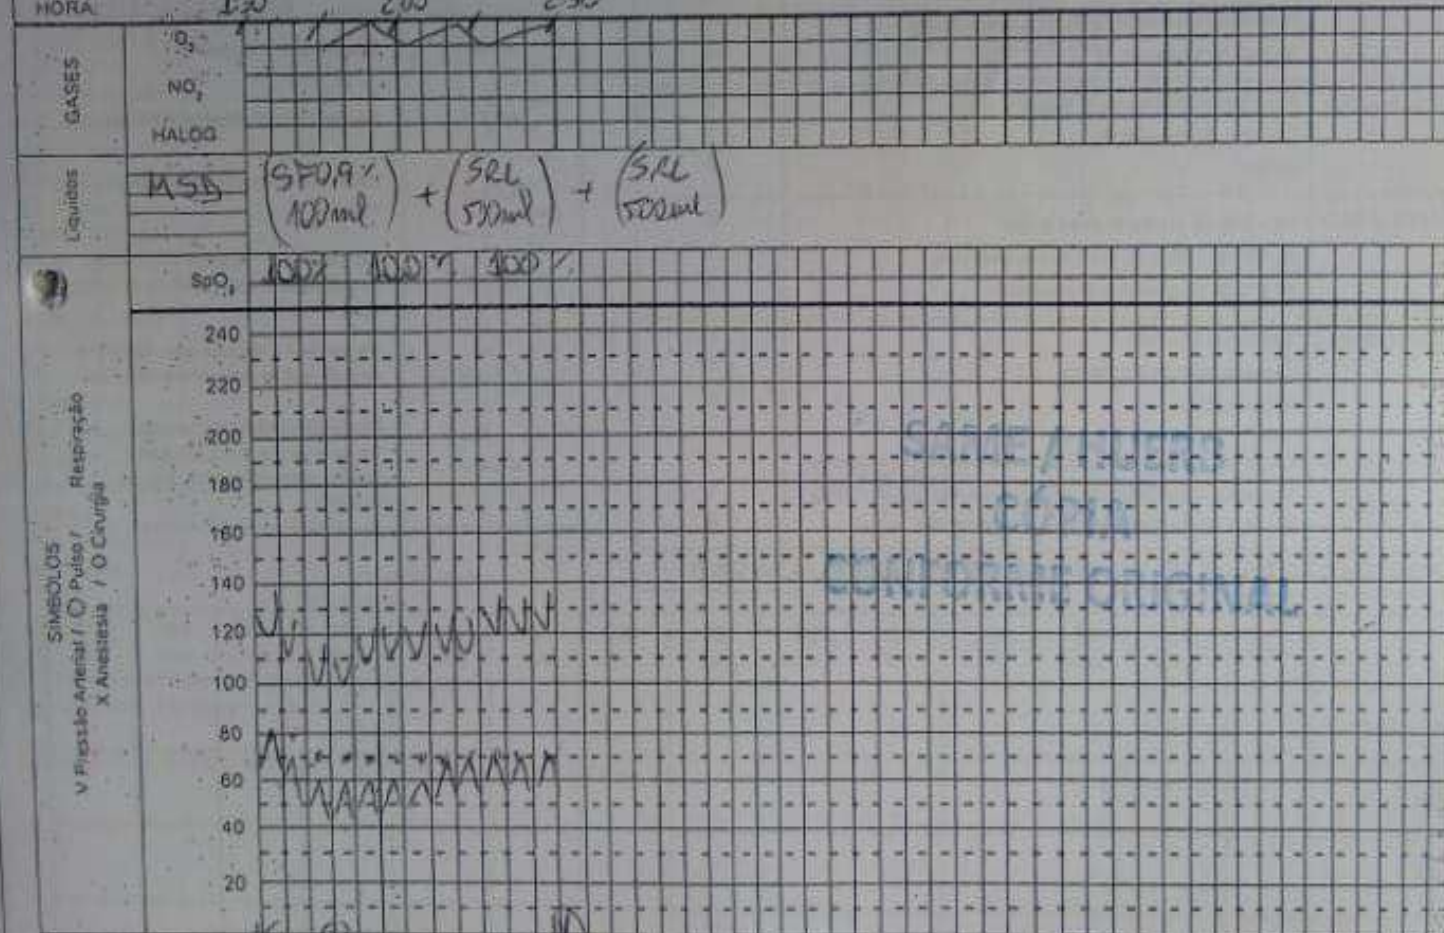 HORA 1:30 2:00 2:30
GASES
O₂
NO₂
HALOG
Líquidos
MSD (SF0,9% 100ml) + (SRL 500ml) + (SRL 500ml)
SpO₂ 100% 100% 100%
SIMBOLOS
V Pressão Arterial / O Pulso / Respiração
X Anestesia / O Cirurgia
240
220
200
180
160
140
120
100
80
60
40
20
SAME / HUERB
CÓPIA
CONFORME ORIGINAL